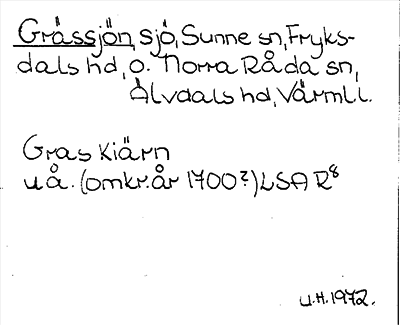 Gråssjön, sjö, Sunne sn, Fryks-
dals hd, o. Norra Råda sn,
Älvdals hd, Värml.
Gras Kiärn
u å. (omkr. år 1700?) LSA R8
U.H. 1972.